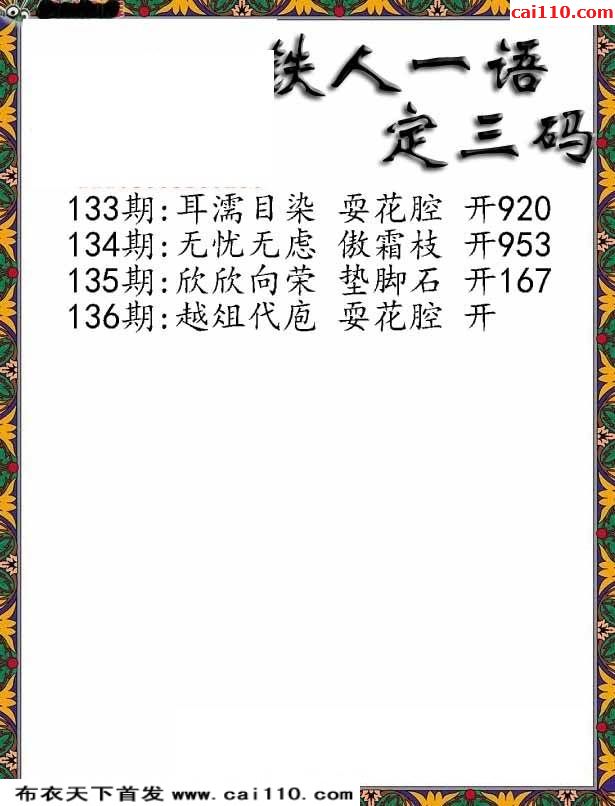 cai110.com
铁人一语
定三码
133期:耳濡目染 耍花腔 开920
134期:无忧无虑 傲霜枝 开953
135期:欣欣向荣 垫脚石 开167
136期:越俎代庖 耍花腔 开
布衣天下首发 www.cai110.com